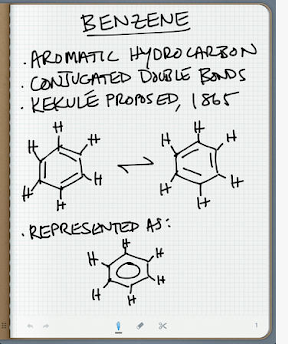 BENZENE
· AROMATIC HYDROCARBON
· CONJUGATED DOUBLE BONDS
· KEKULÉ PROPOSED, 1865
H H
H H
H H
H H
H H
H H
· REPRESENTED AS:
H
H H
H H
H
1